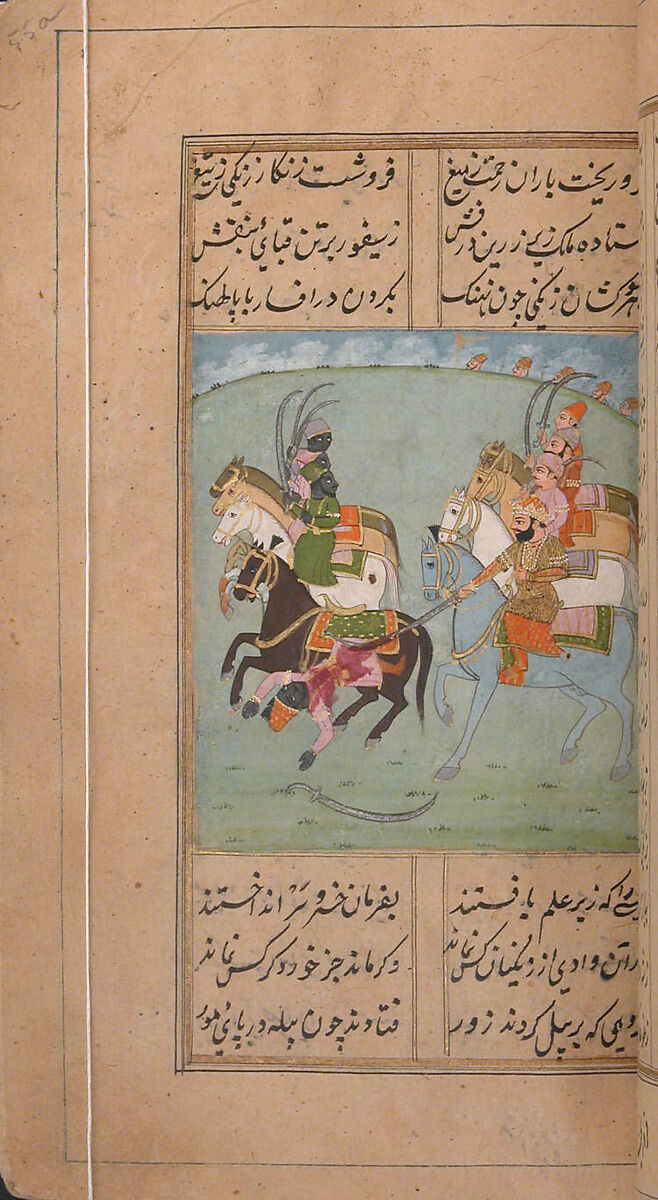 رو ریخت باران رحمت ز میغ فروشست زنگار زنگی ز تیغ
ستاده ملک زیر زرین درفش ز سیفور بر تن قبای بنفش
کشان زنگی چون نهنک بکردن در افسار یا پالهنک
که زیر علم یافتند بفرمان خسرو سر انداختند
وادی از زنگیان کس نماند وکر ماند جز خورد کرکس نماند
روهی که بر پیل کردند زور فتادند چون پیله در پای مور